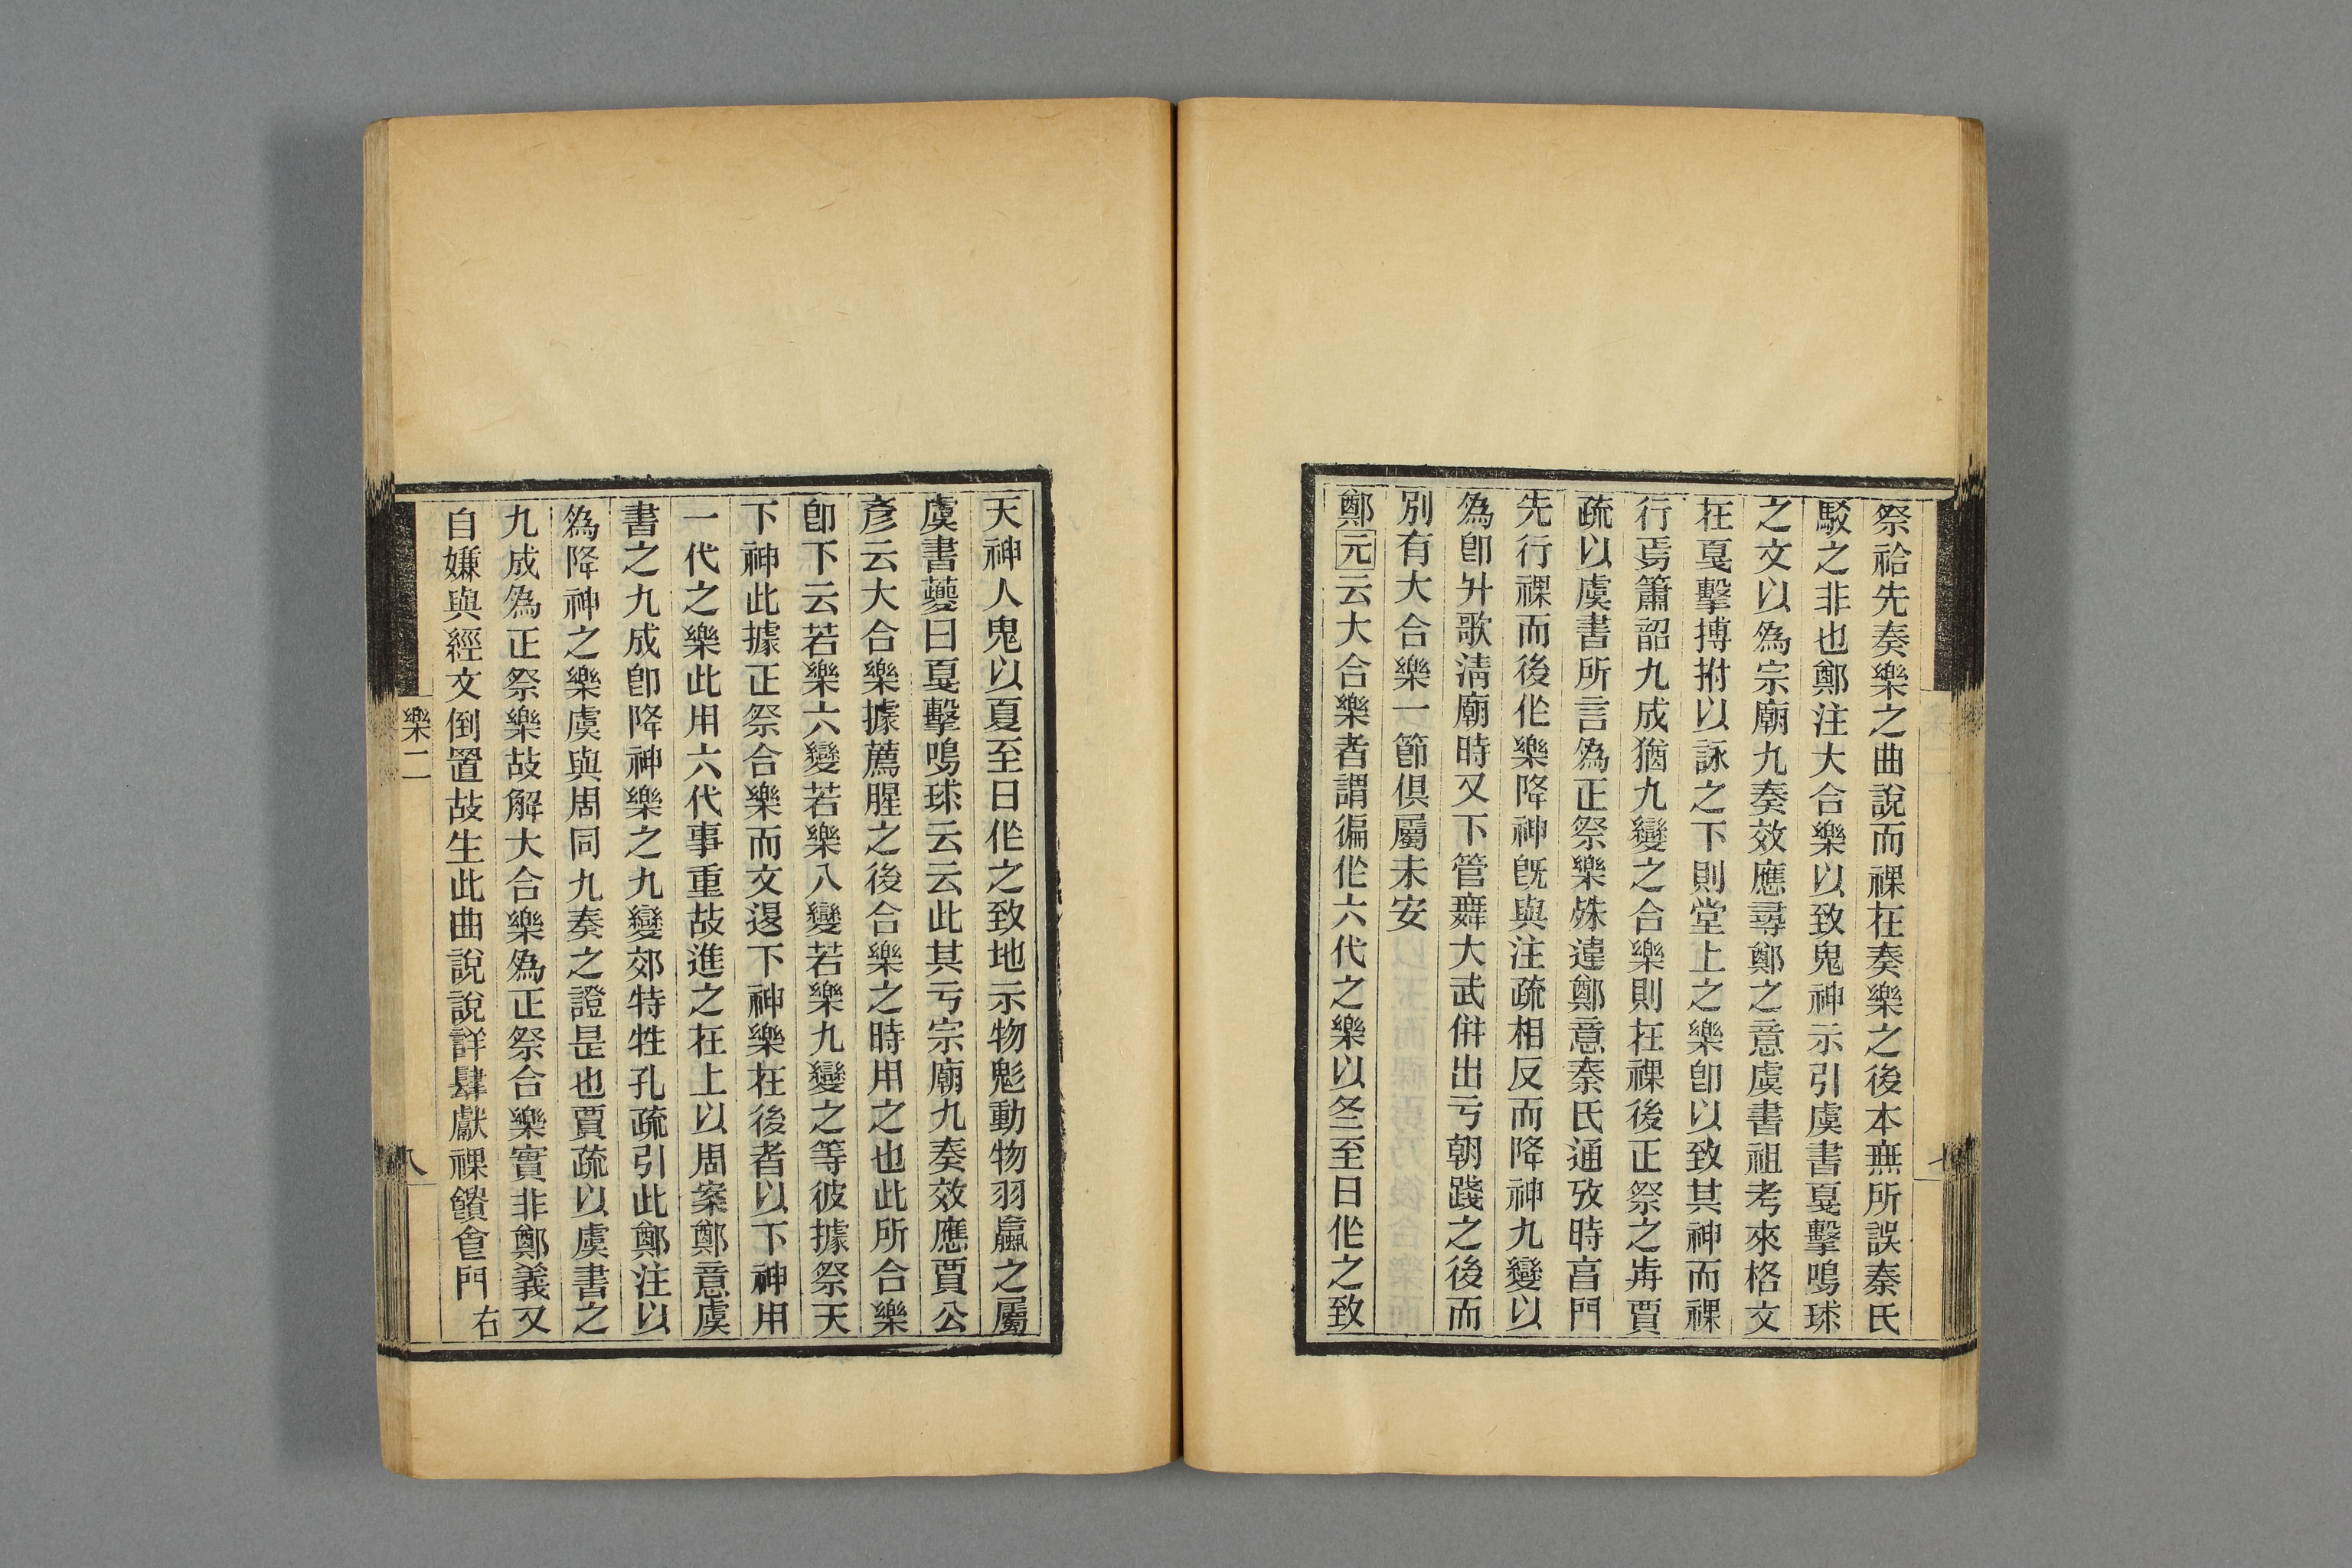 祭祫先奏樂之曲說而祼在奏樂之後本無所誤秦氏
駁之非也鄭注大合樂以致鬼神示引虞書戛擊鳴球
之文以爲宗廟九奏效應尋鄭之意虞書祖考來格文
在戛擊搏拊以詠之下則堂上之樂卽以致其神而祼
行焉簫韶九成猶九變之合樂則在祼後正祭之歬賈
疏以虞書所言爲正祭樂殊違鄭意秦氏通攷時享門
先行祼而後作樂降神旣與注疏相反而降神九變以
爲卽升歌淸廟時又下管舞大武併出亏朝踐之後而
別有大合樂一節俱屬未安
鄭元云大合樂者謂徧作六代之樂以冬至日作之致
天神人鬼以夏至日作之致地示物鬽動物羽臝之屬
虞書夔曰戛擊鳴球云云此其亏宗廟九奏效應賈公
彥云大合樂據薦腥之後合樂之時用之也此所合樂
卽下云若樂六變若樂八變若樂九變之等彼據祭天
下神此據正祭合樂而文退下神樂在後者以下神用
一代之樂此用六代事重故進之在上以周案鄭意虞
書之九成卽降神樂之九變郊特牲孔疏引此鄭注以
爲降神之樂虞與周同九奏之證是也賈疏以虞書之
九成爲正祭樂故解大合樂爲正祭合樂實非鄭義又
自嫌與經文倒置故生此曲說說詳肆獻祼饋食門 右
樂二
八
七